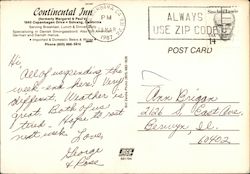 Continental Inn
(formerly Margaret & Paul's)
1640 Copenhagen Drive • Solvang, California
Serving Breakfast, Lunch & Dinner
Specializing in Danish Smorgasbord
German and Danish
• Imported & Domestic Beers &
Phone (805) 688-
PM
MAR
1987
ALWAYS
USE ZIP CODE
14
POST CARD
Hi,
All of us spending the
week-end here. Very
different. Weather is
great. Both of us
tired. Hope to eat
out next week.
Love,
George
& Rose
Ann Brigan
2126 S. East Ave.
Berwyn, Il.
60402